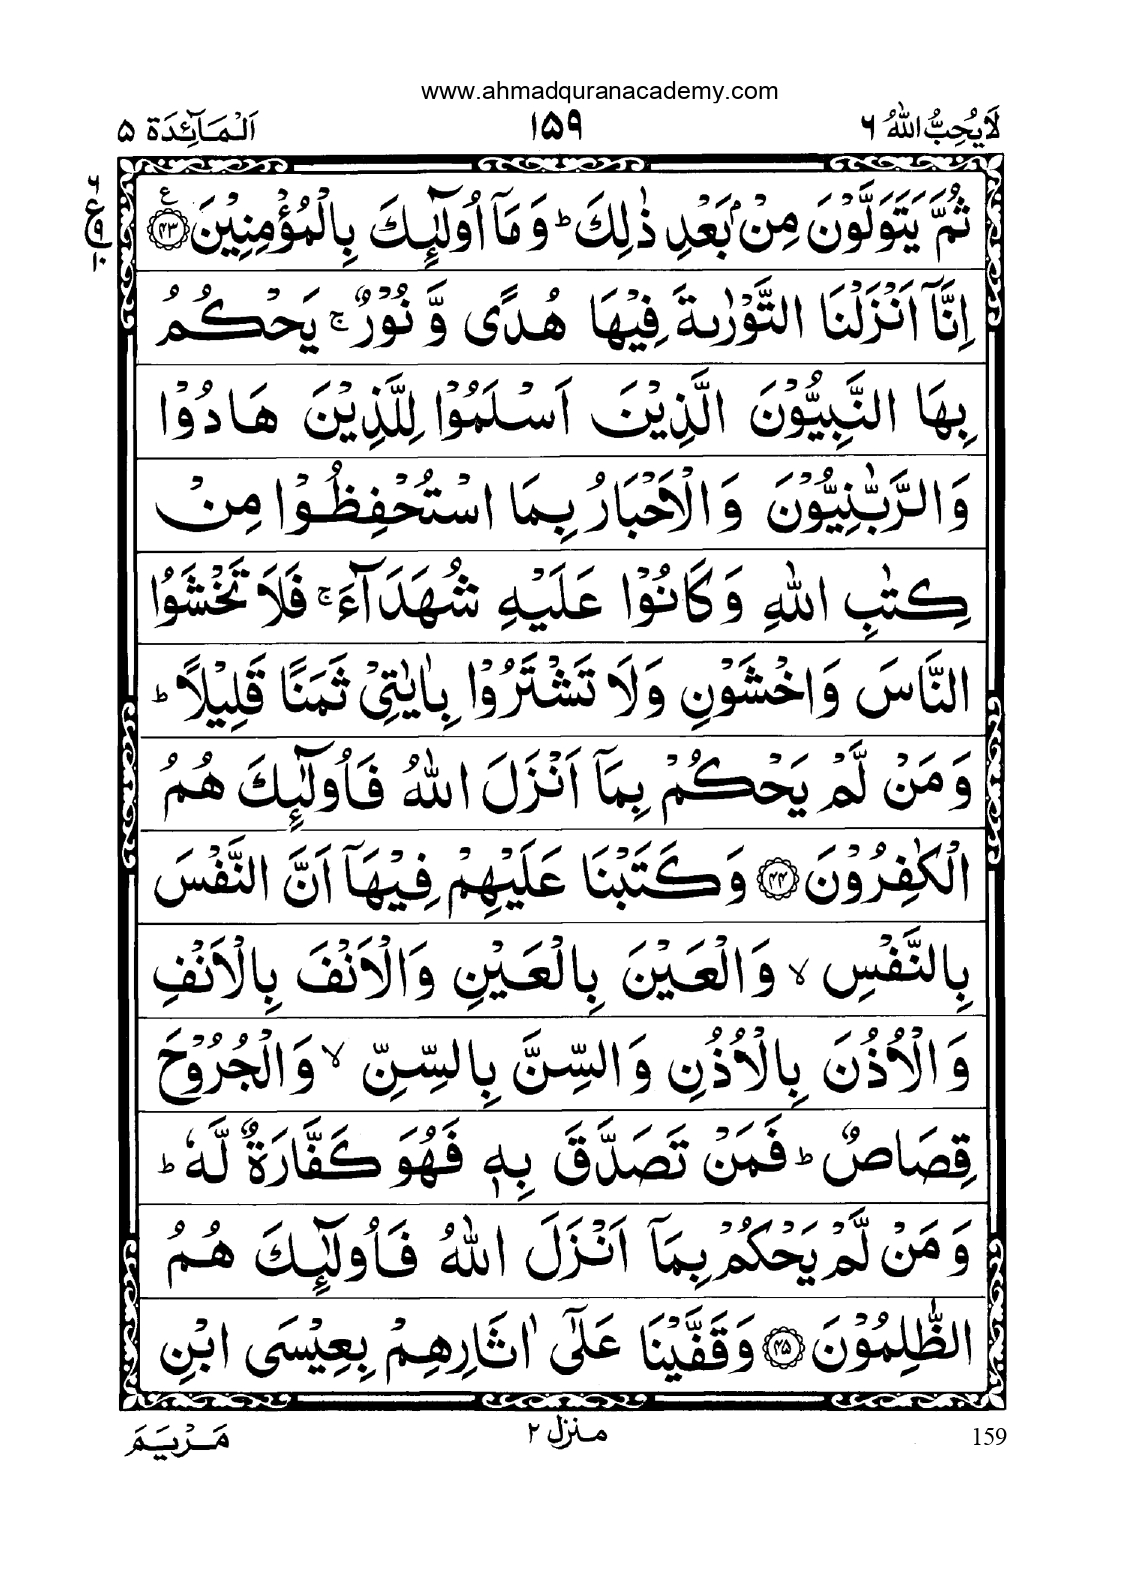 www.ahmadquranacademy.com
لَا يُحِبُّ اللّٰهُ ٦ ١٥٩ اَلْمَآئِدَة ۵
ثُمَّ يَتَوَلَّوْنَ مِنْۢ بَعْدِ ذٰلِكَ ؕ وَ مَاۤ اُولٰٓئِكَ بِالْمُؤْمِنِيْنَ ۧ ﴿۴۳﴾
٦
ع
٩
١٠
اِنَّاۤ اَنْزَلْنَا التَّوْرٰىةَ فِيْهَا هُدًى وَّ نُوْرٌ ۚ يَحْكُمُ
بِهَا النَّبِيُّوْنَ الَّذِيْنَ اَسْلَمُوْا لِلَّذِيْنَ هَادُوْا
وَ الرَّبّٰنِيُّوْنَ وَ الْاَحْبَارُ بِمَا اسْتُحْفِظُوْا مِنْ
كِتٰبِ اللّٰهِ وَ كَانُوْا عَلَيْهِ شُهَدَآءَ ۚ فَلَا تَخْشَوُا
النَّاسَ وَ اخْشَوْنِ وَ لَا تَشْتَرُوْا بِاٰيٰتِيْ ثَمَنًا قَلِيْلًا ؕ
وَ مَنْ لَّمْ يَحْكُمْ بِمَاۤ اَنْزَلَ اللّٰهُ فَاُولٰٓئِكَ هُمُ
الْكٰفِرُوْنَ ﴿۴۴﴾ وَ كَتَبْنَا عَلَيْهِمْ فِيْهَاۤ اَنَّ النَّفْسَ
بِالنَّفْسِ ۙ وَ الْعَيْنَ بِالْعَيْنِ وَ الْاَنْفَ بِالْاَنْفِ
وَ الْاُذُنَ بِالْاُذُنِ وَ السِّنَّ بِالسِّنِّ ۙ وَ الْجُرُوْحَ
قِصَاصٌ ؕ فَمَنْ تَصَدَّقَ بِهٖ فَهُوَ كَفَّارَةٌ لَّهٗ ؕ
وَ مَنْ لَّمْ يَحْكُمْ بِمَاۤ اَنْزَلَ اللّٰهُ فَاُولٰٓئِكَ هُمُ
الظّٰلِمُوْنَ ﴿۴۵﴾ وَ قَفَّيْنَا عَلٰۤى اٰثَارِهِمْ بِعِيْسَى ابْنِ
159 منزل ٢ مَرْيَمَ